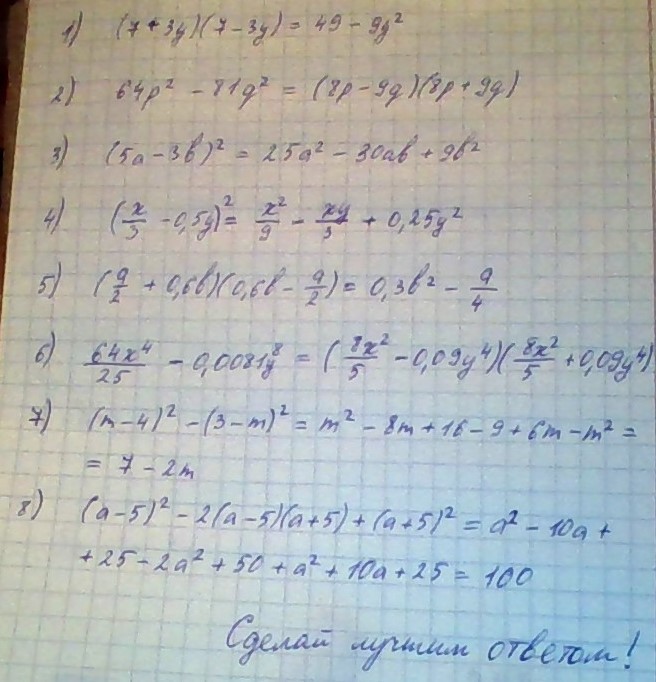 1) (7+3y)(7-3y) = 49 - 9y²
2) 64p² - 81q² = (8p-9q)(8p+9q)
3) (5a-3b)² = 25a² - 30ab + 9b²
4) (x/3 - 0,5y)² = x²/9 - xy/3 + 0,25y²
5) (9/2 + 0,6b)(0,6b - 9/2) = 0,3b² - 9/4
6) 64x⁴/25 - 0,0081y⁸ = (8x²/5 - 0,09y⁴)(8x²/5 + 0,09y⁴)
7) (m-4)² - (3-m)² = m² - 8m + 16 - 9 + 6m - m² =
= 7 - 2m
8) (a-5)² - 2(a-5)(a+5) + (a+5)² = a² - 10a +
+ 25 - 2a² + 50 + a² + 10a + 25 = 100
Сделай лучшим ответом!